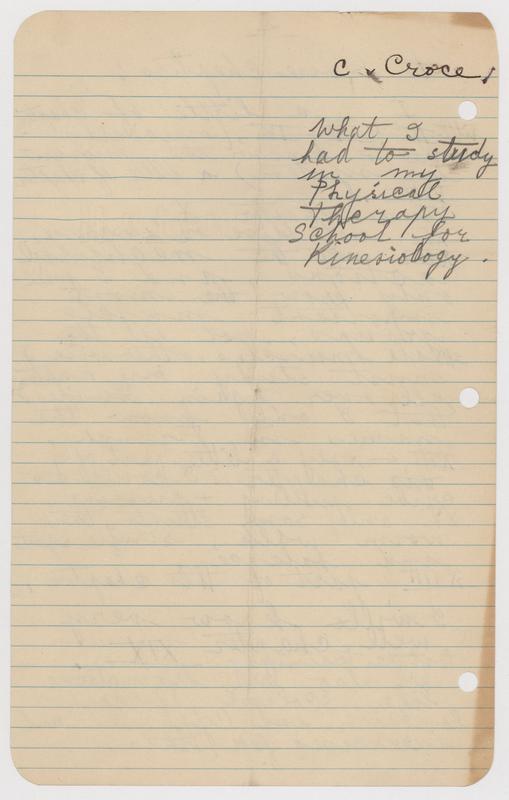 C. Croce.
What I
had to study
in my
Physical
Therapy
School for
Kinesiology.